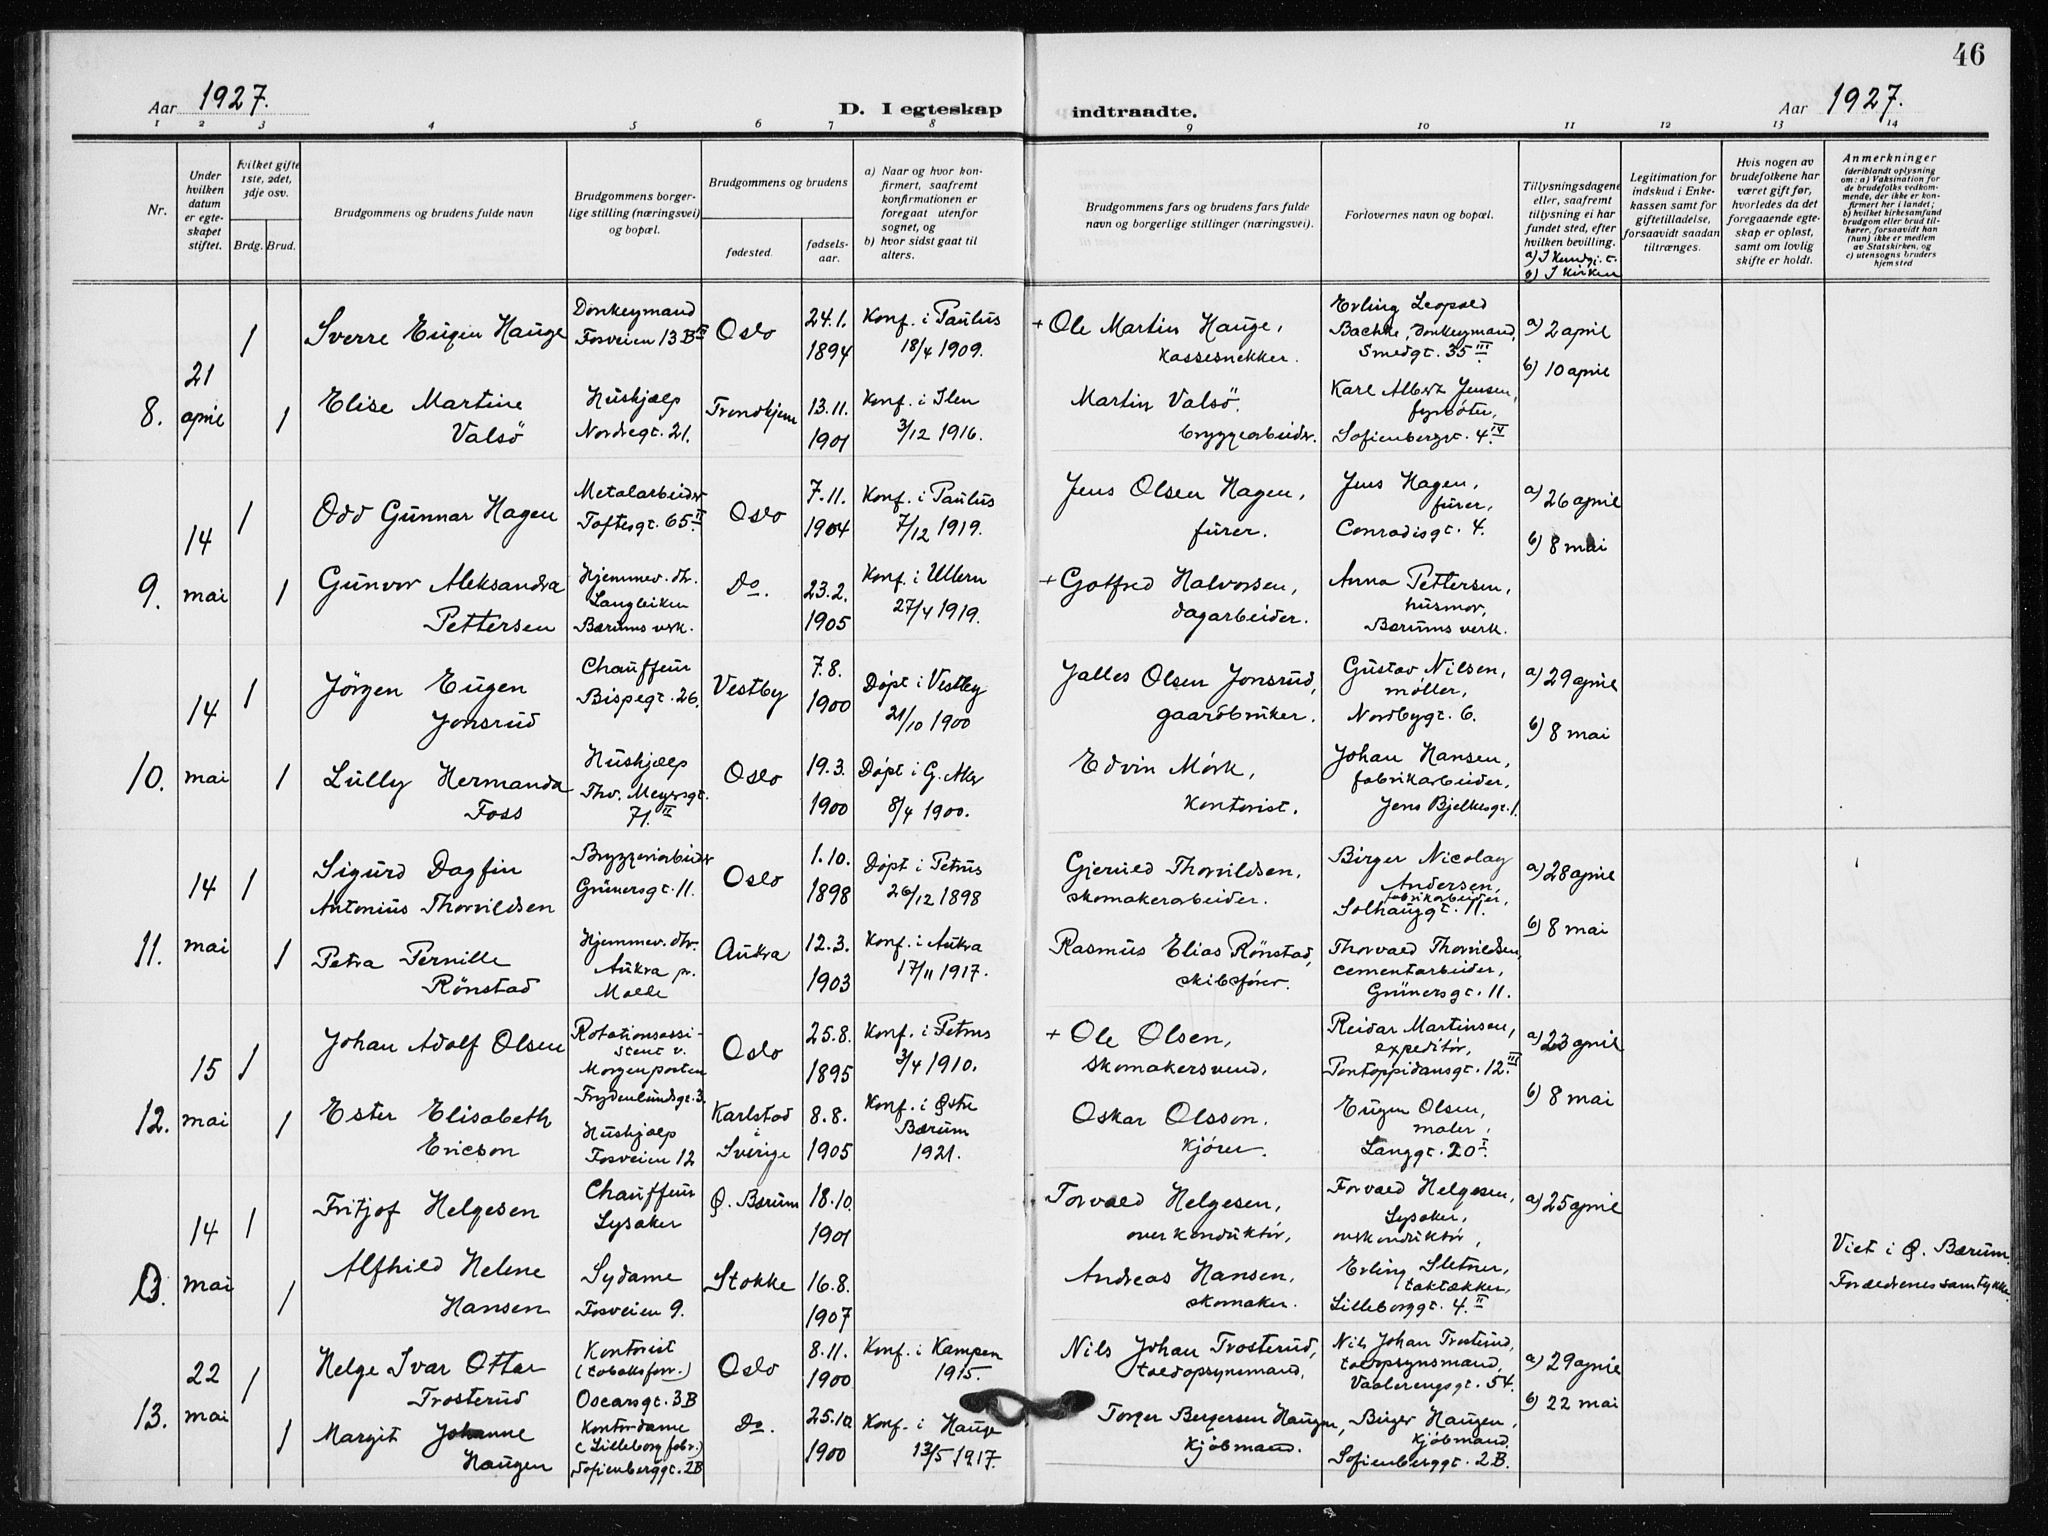 46
Aar 1927.
D. I egteskap indtraadte.
Aar 1927.
1 2 3 4 5 6 7 8 9 10 11 12 13 14
Nr.
Under hvilken datum er egteskapet stiftet.
Hvilket gifte 1ste, 2det, 3dje osv.
Brdg. Brud.
Brudgommens og brudens fulde navn
Brudgommens borgerlige stilling (næringsvei) og bopæl.
Brudgommens og brudens
fødested.
fødselsaar.
a) Naar og hvor konfirmert, saafremt konfirmationen er foregaat utenfor sognet, og
b) hvor sidst gaat til alters.
Brudgommens fars og brudens fars fulde navn og borgerlige stillinger (næringsvei).
Forlovernes navn og bopæl.
Tillysningsdagene eller, saafremt tillysning ei har fundet sted, efter hvilken bevilling.
b) I Kirken
Legitimation for indskud i Enkekassen samt for giftetilladelse, forsaavidt saadan tiltrænges.
Hvis nogen av brudefolkene har været gift før, hvorledes da det foregaaende egteskap er opløst, samt om lovlig skifte er holdt.
Anmerkninger
(deriblandt oplysning om: a) Vaksination for de brudefolks vedkommende, der ikke er konfirmert her i landet;
b) hvilket kirkesamfund brudgom eller brud tilhører, forsaavidt han (hun) ikke er medlem av Statskirken, og
c) utensogns bruders hjemsted
8. 21 april
1 Sverre Eugen Hauge
Donkeymand
Fosveien 13 B III
Oslo
24.1. 1894
Konf. i Paulus
18/4 1909.
+ Ole Martin Hauge,
kassesnekker.
Erling Leopold
Bachke, Donkeymand,
Smedgt. 35 III
a) 2 april
b) 10 april
1 Elise Martine
Valsö
Hushjælp
Nordregt. 21.
Trondhjem
13.11. 1901
Konf. i Ilen
3/12 1916.
Martin Valsö.
bryggearbeider.
Karl Albert Jensen,
fyrbøter,
Sofienberggt. 4 IV
9. 14 mai
1 Odd Gunnar Hagen
Metalarbeider
Toftesgt. 65 II
Oslo
7.11. 1904
Konf. i Paulus
7/12 1919.
Jens Olsen Hagen,
fürer.
Jens Hagen,
fürer,
Conradisgt. 4.
a) 26 april
b) 8 mai
1 Gunvor Aleksandra
Pettersen
Hjemmev. dtr.
Langleiken
Bærums verk.
Do.
23.2. 1905
Konf. i Ullern
27/4 1919.
+ Gotfred Halvorsen,
dagarbeider.
Anna Pettersen,
husmor,
Bærums verk.
10. 14 mai
1 Jörgen Eugen
Jonsrud
Chauffeur
Bispegt. 26.
Vestby
7.8. 1900
Døpt i Vestby
21/10 1900
Jalles Olsen Jonsrud,
gaardbruker.
Gustav Nilsen,
møller,
Nordbygt. 6.
a) 29 april
b) 8 mai
1 Lully Hermanda
Foss
Hushjælp
Thv. Meyersgt.
71. II
Oslo
19.3. 1900
Døpt i G. Aker
8/4 1900.
Edvin Mörk,
kontorist.
Johan Hansen,
fabrikarbeider,
Jens Bjelkesgt. 1.
11. 14 mai
1 Sigurd Dagfin
Antonius Thorvildsen
Bryggeriarbeider
Grünersgt. 11.
Oslo
1.10. 1898
Døpt i Petrus
26/12 1898
Gjeruld Thorvildsen,
skomakerarbeider.
Birger Nicolay
Andersen,
fabrikarbeider,
Solhauggt. 11.
a) 28 april
b) 8 mai
1 Petra Pernille
Rönstad
Hjemmev. dtr.
Aukra pr.
Molde
Aukra
12.3. 1903
Konf. i Aukra
17/11 1917.
Rasmus Elias Rönstad,
skibsfører.
Thorvald Thorvildsen,
cementarbeider,
Grünersgt. 11.
12. 15 mai
1 Johan Adolf Olsen
Rotationsassistent v.
Morgenposten
Frydenlundsgt. 3.
Oslo
25.8. 1895
Konf. i Petrus
3/4 1910.
+ Ole Olsen,
skomakersvend.
Reidar Martinsen,
expeditör,
Pontoppidansgt. 12. III
a) 23 april
b) 8 mai
1 Ester Elisabeth
Ericson
Hushjælp
Fosveien 12
Karlstad
i
Sverige
8.8. 1905
Konf. i Østre
Bærum
1921.
Oskar Olsson.
kjører.
Eugen Olsen,
maler,
Langgt. 20 I
13. 14 mai
1 Fritjof Helgesen
Chauffeur
Lysaker
Ø. Bærum
18.10. 1901
Torvald Helgesen,
overkonduktör,
Torvald Helgesen,
Lysaker,
overkonduktör,
a) 25 april
1 Alfhild Helene
Hansen
Sydame
Fosveien 9.
Stokke
16.8. 1907
Andreas Hansen,
skomaker.
Erling Sletner,
taktækker,
Lilleborggt. 4. II
Viet i Ø. Bærum.
Forældrenes samtykke.
13. 22 mai
1 Helge Ivar Ottar
Trosterud
Kontorist
(tobaksforr.)
Oscarsgt. 3B
Oslo
8.11. 1900
Konf. i Kampen
1915.
Nils Johan Trosterud,
toldopsynsmand,
Nils Johan Trosterud,
toldopsynsmand,
Vaalerengsgt. 54.
a) 29 april
b) 22 mai
1 Margit Johanne
Haugen
Kontordame
(Lilleborg fabr.)
Sofienberggt. 2B
Do.
25.10. 1900
Konf. i Hauge
13/5 1917.
Torger Bergersen Haugen,
kjøbmand.
Birger Haugen,
kjøbmand.
Sofienberggt. 2B.